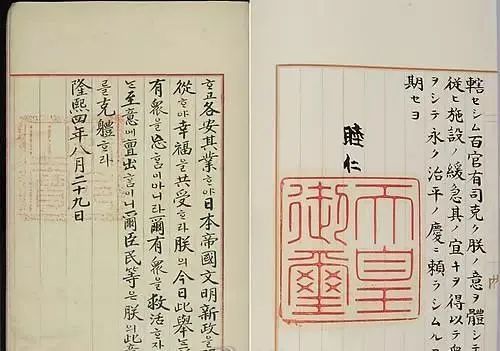 轄セシム百官有司克ク朕ノ意ヲ體シテ
従ヒ施設ノ緩急其ノ宜キヲ得以テ衆
ヲシテ永ク治平ノ慶ニ頼ラシムル
期セヨ
睦仁
天皇
御璽
各安其業ᄒᆞ야日本帝國文明新政을
從ᄒᆞ야幸福을共受ᄒᆞ라朕의今日此擧ᄂᆞᆫ
有衆을忘홈이아니라爾有衆을救活ᄒᆞ쟈
ᄂᆞᆫ至意에亶出홈이니爾臣民等은朕의此意
를克體ᄒᆞ라
隆熙四年八月二十九日